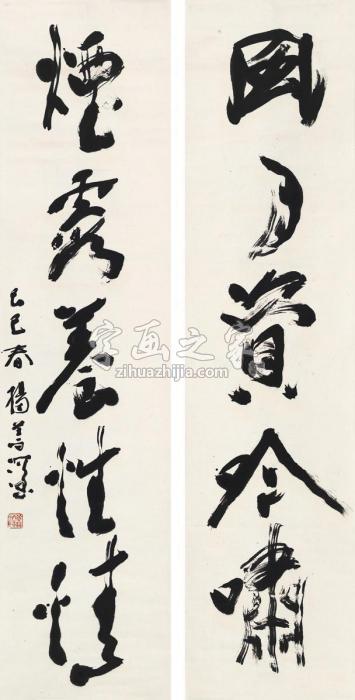 風月資吟嘯
煙霞養性情
己巳春楊善深
字画之家
zihuazhijia.com